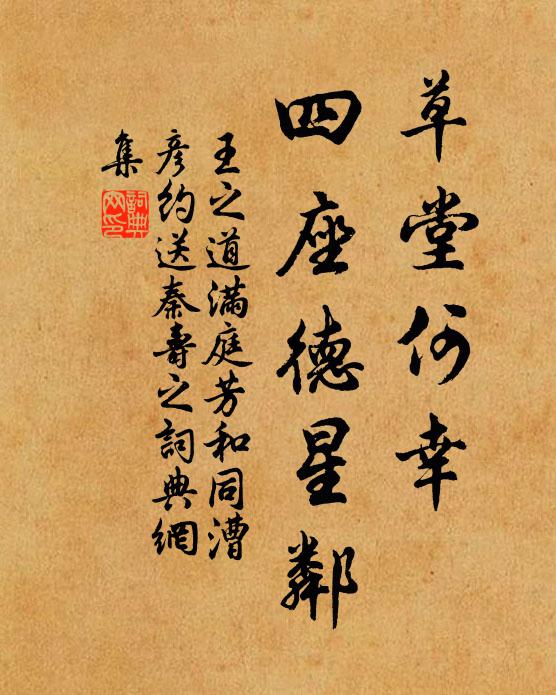 草堂何幸
四座德星鄰
王之道滿庭芳和同漕
彦約送秦壽之詞典網
集
詞典網印